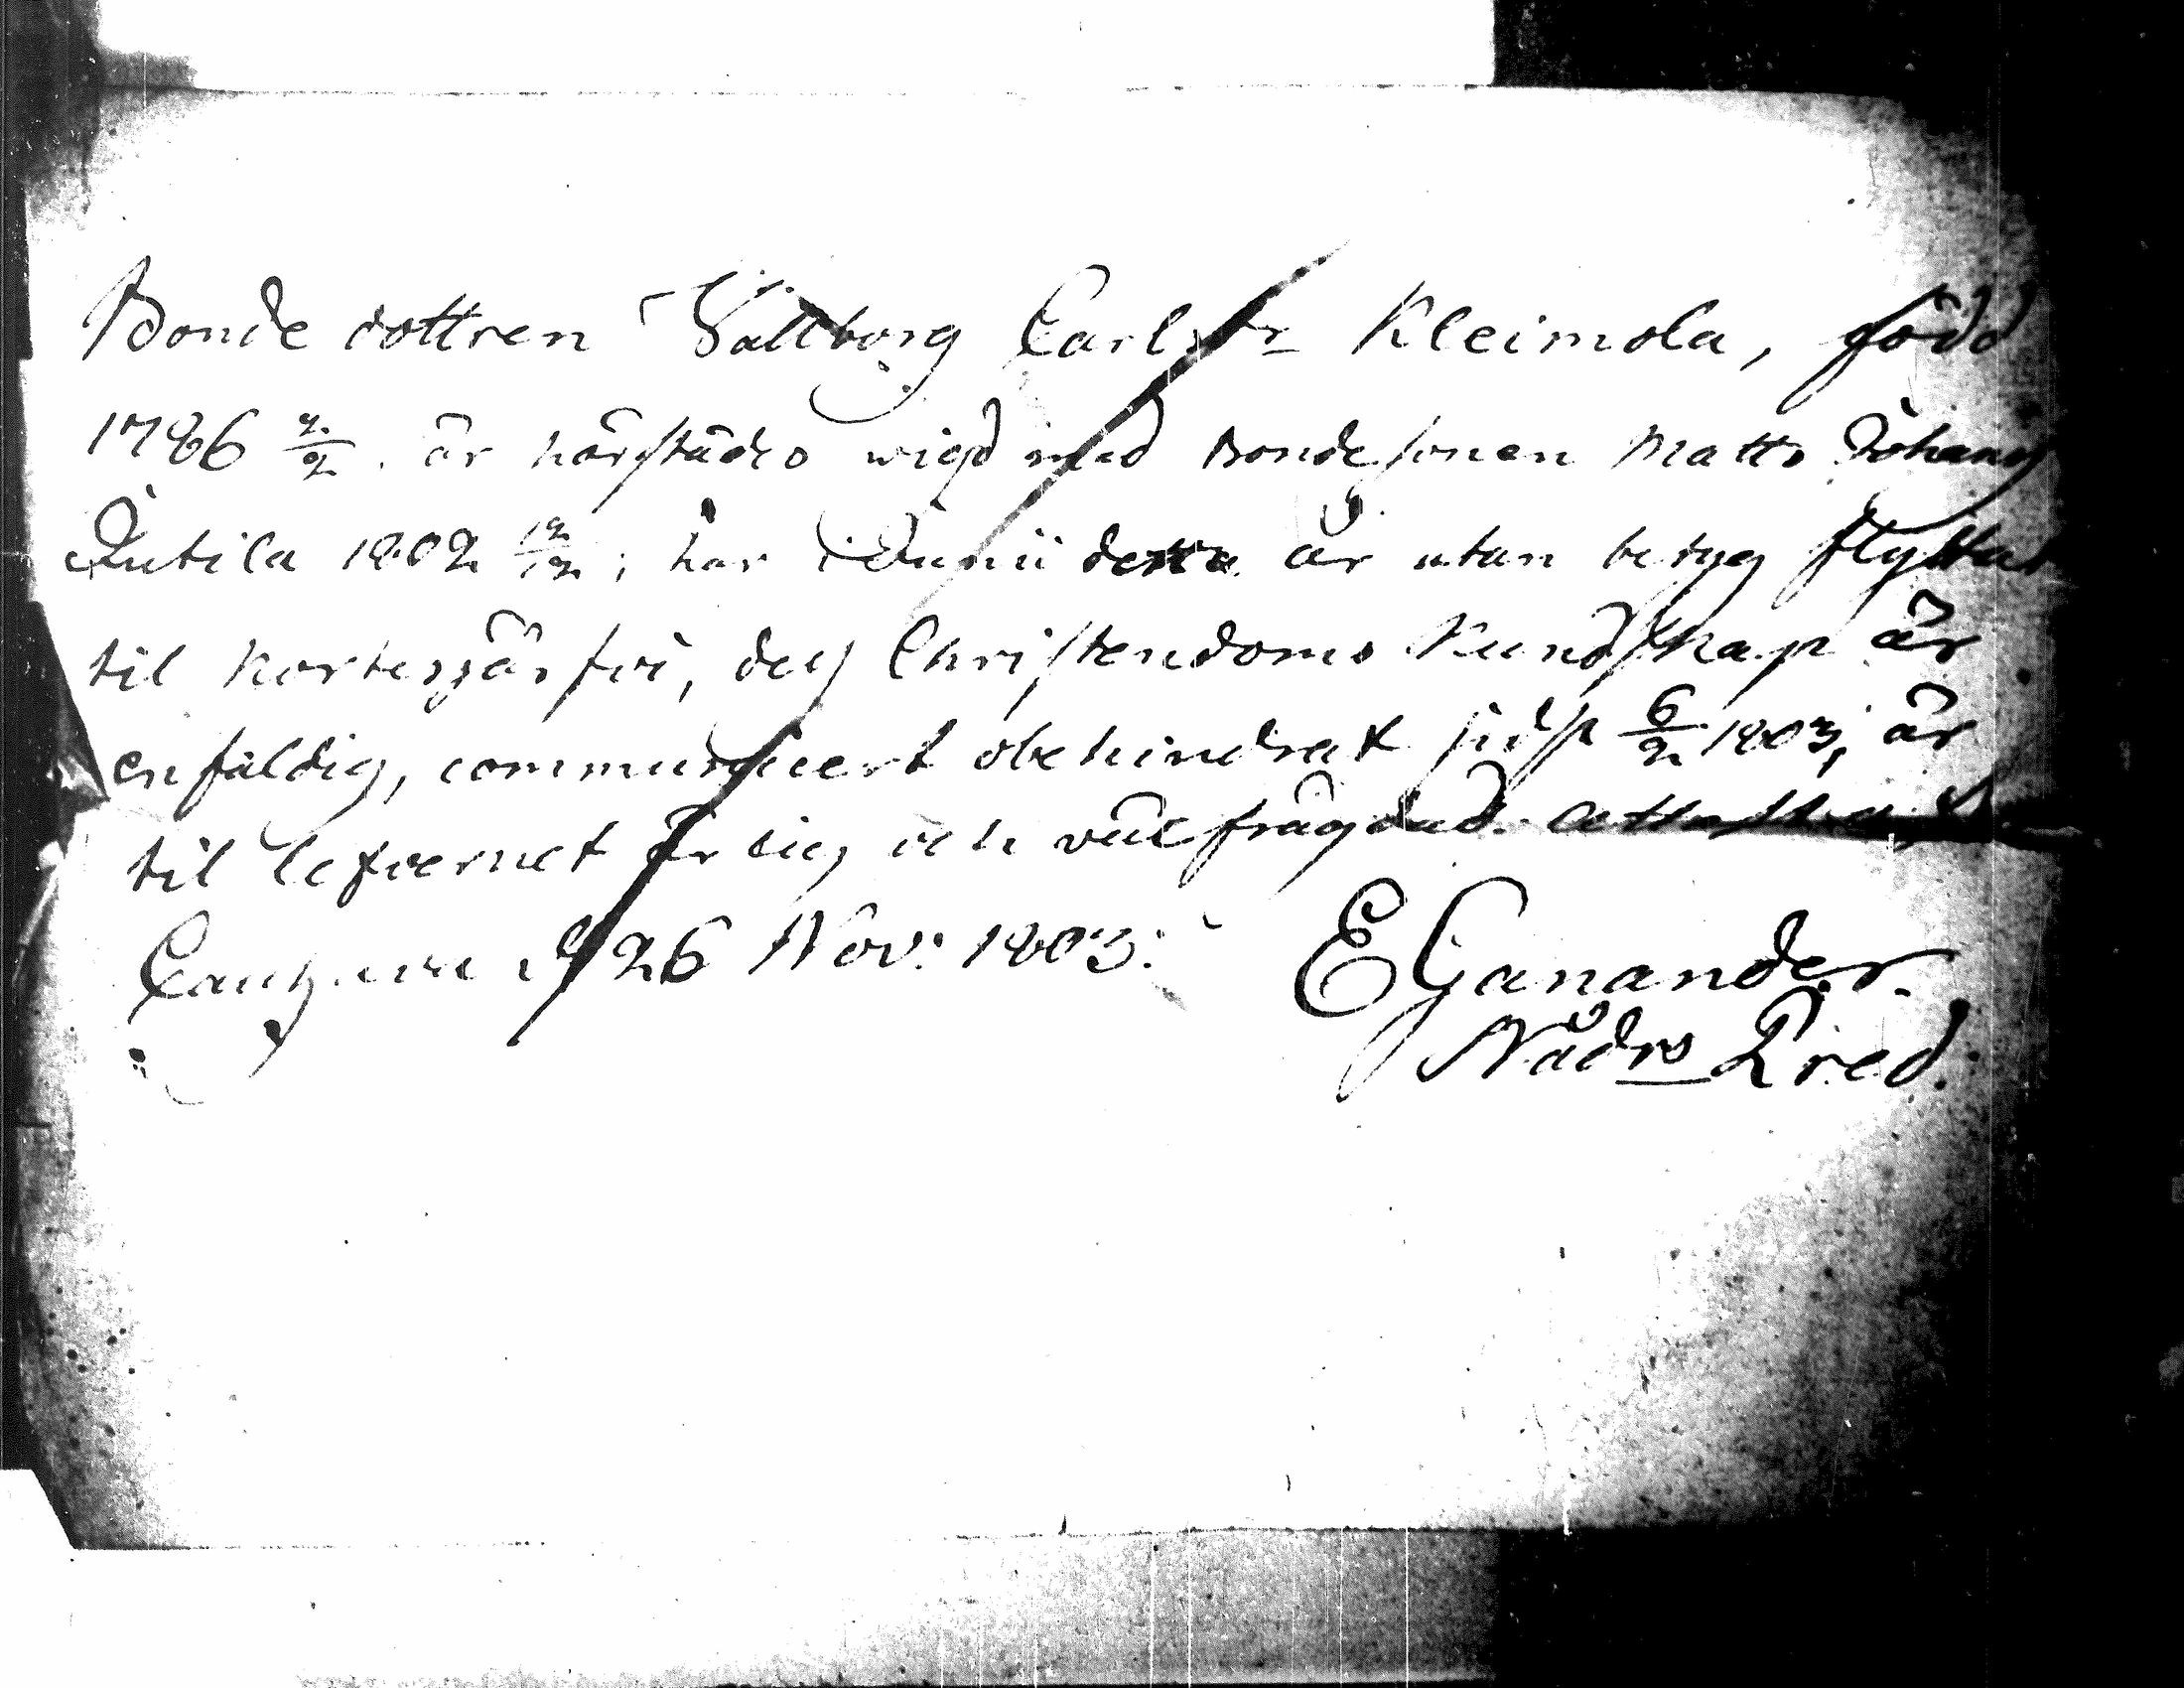 Bonde dottren Vallborg Carlsdr Kleimola, född
1786 2/2. är härstädes wigd med Bondesonen Matts Johans
Rutila 1802 12/12; har i Junii detta år utan betyg flyttat
til Kortesjärfvi, dess Christendoms Kundskap är
enfäldig, communicert obehindrat sidst 6/2 1803; är
til lefvernet ärlig och välfrägdad. attesterar
Cauhava d 26 Nov: 1803.
E Ganander.
Nådrs Pred.